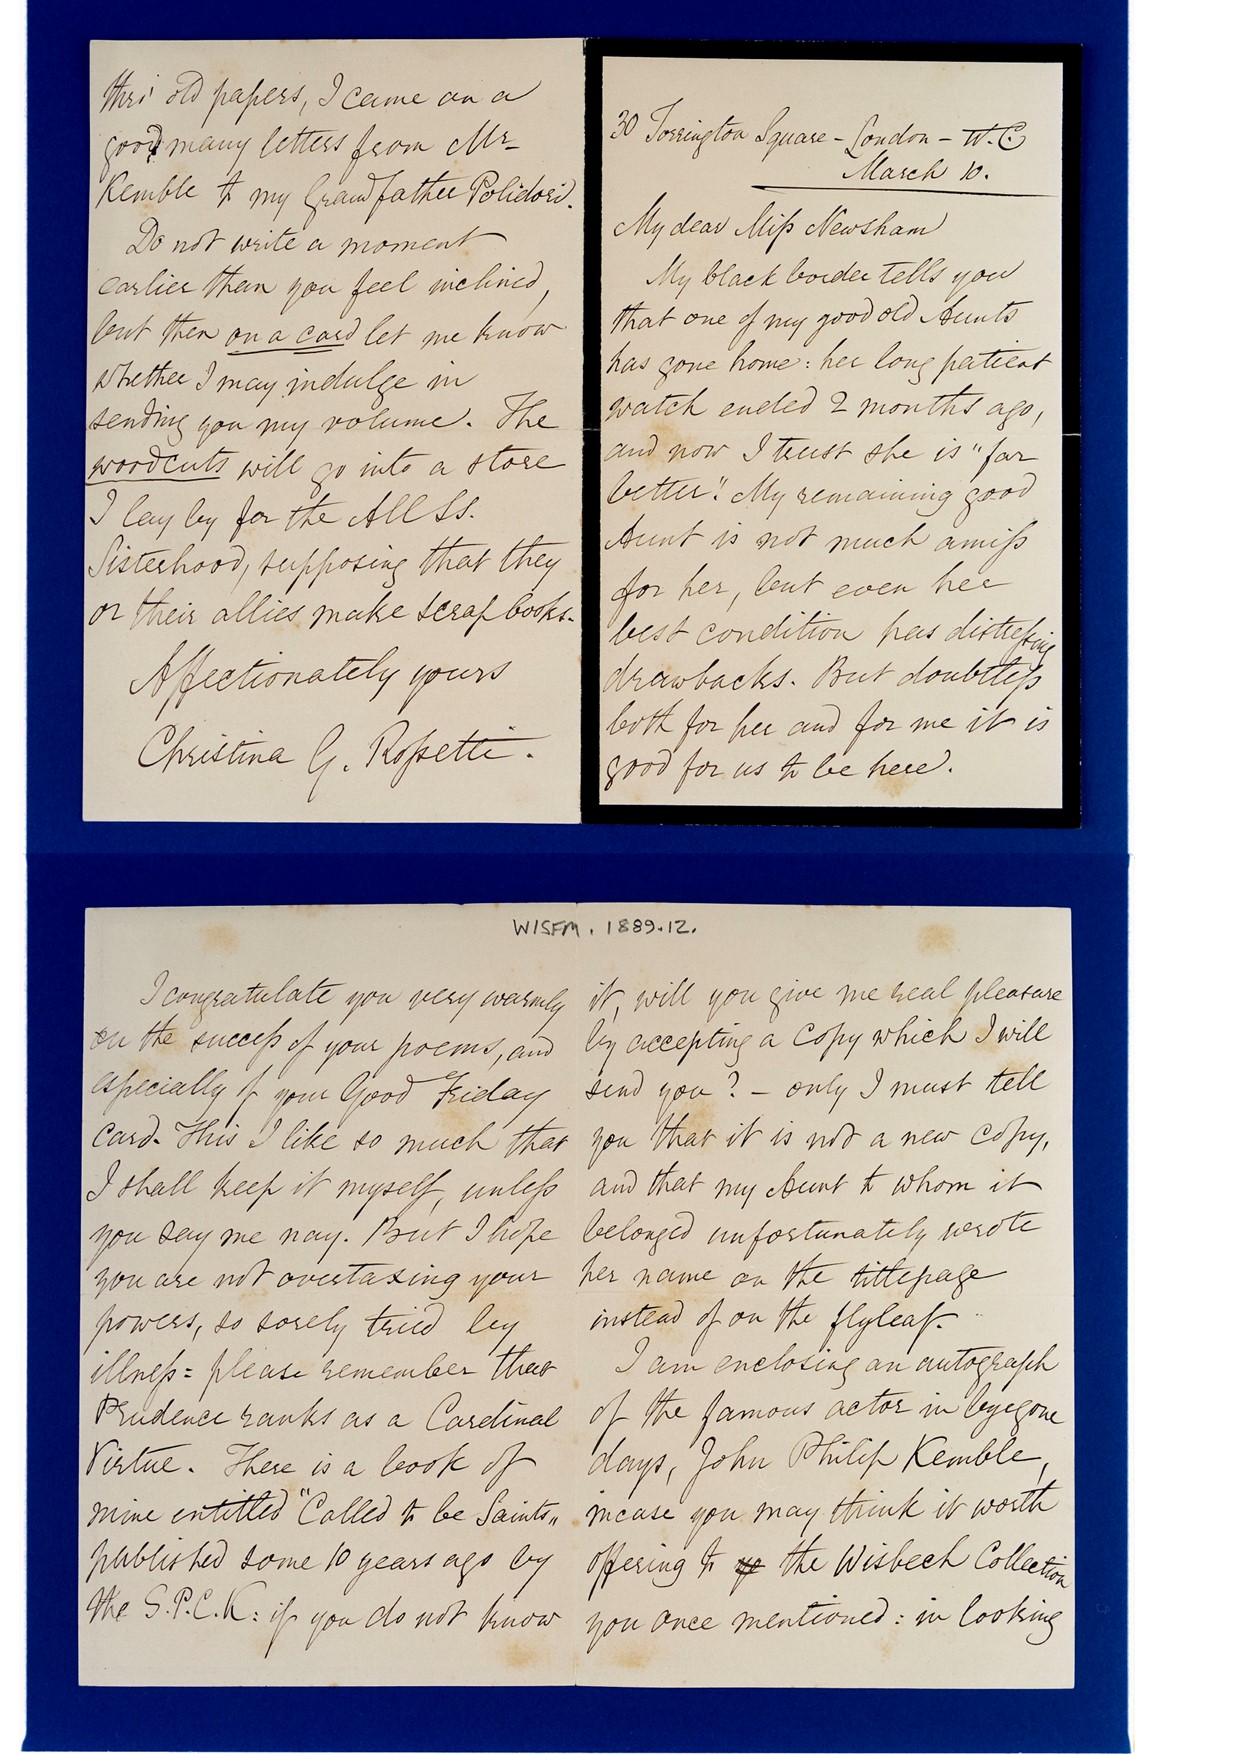 30 Torrington Square – London – W.C
March 10.
My dear Miss Newsham
My black border tells you
that one of my good old Aunts
has gone home: her long patient
watch ended 2 months ago,
and now I trust she is "far
better". My remaining good
Aunt is not much amiss
for her, but even her
best condition has distressing
drawbacks. But doubtless
both for her and for me it is
good for us to be here.
WISFM. 1889.12.
I congratulate you very warmly
on the success of your poems, and
especially of your Good Friday
card. This I like so much that
I shall keep it myself, unless
you say me nay. But I hope
you are not overtaxing your
powers, so sorely tried by
illness = please remember that
Prudence ranks as a Cardinal
Virtue. There is a book of
mine entitled "Called to be Saints"
published some 10 years ago by
the S.P.C.K: if you do not know
it, will you give me real pleasure
by accepting a copy which I will
send you? – only I must tell
you that it is not a new copy,
and that my Aunt to whom it
belonged unfortunately wrote
her name on the titlepage
instead of on the flyleaf.
I am enclosing an autograph
of the famous actor in byegone
days, John Philip Kemble,
incase you may think it worth
offering to the Wisbech Collection
you once mentioned: in looking
thro' old papers, I came on a
good many letters from Mr
Kemble to my Grandfather Polidori.
Do not write a moment
earlier than you feel inclined,
but then on a card let me know
whether I may indulge in
sending you my volume. The
woodcuts will go into a store
I lay by for the All Ss.
Sisterhood, supposing that they
or their allies make scrap books.
Affectionately yours
Christina G. Rossetti.